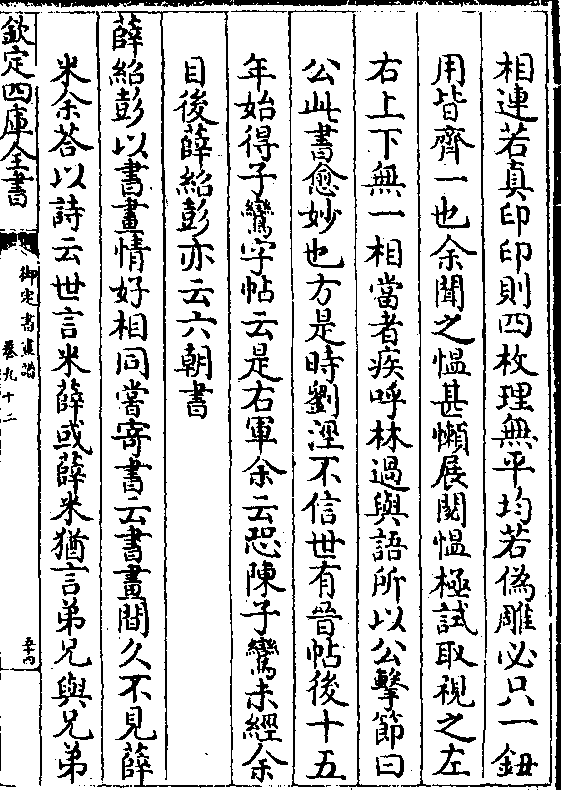 相連若真印印則四枚理無平均若偽雕必只一鈕
用皆齊一也余聞之愠甚懶展閱愠極試取視之左
右上下無一相當者疾呼林過與語所以公擊節曰
公此書愈妙也方是時劉涇不信世有晉帖後十五
年始得子鸞字帖云是右軍余云恐陳子鸞未經余
目後薛紹彭亦云六朝書
薛紹彭以書畫情好相同嘗寄書云書畫間久不見薛
米余荅以詩云世言米薛或薛米猶言弟兄與兄弟
欽定四庫全書
御定書畫譜
卷九十二
五十四